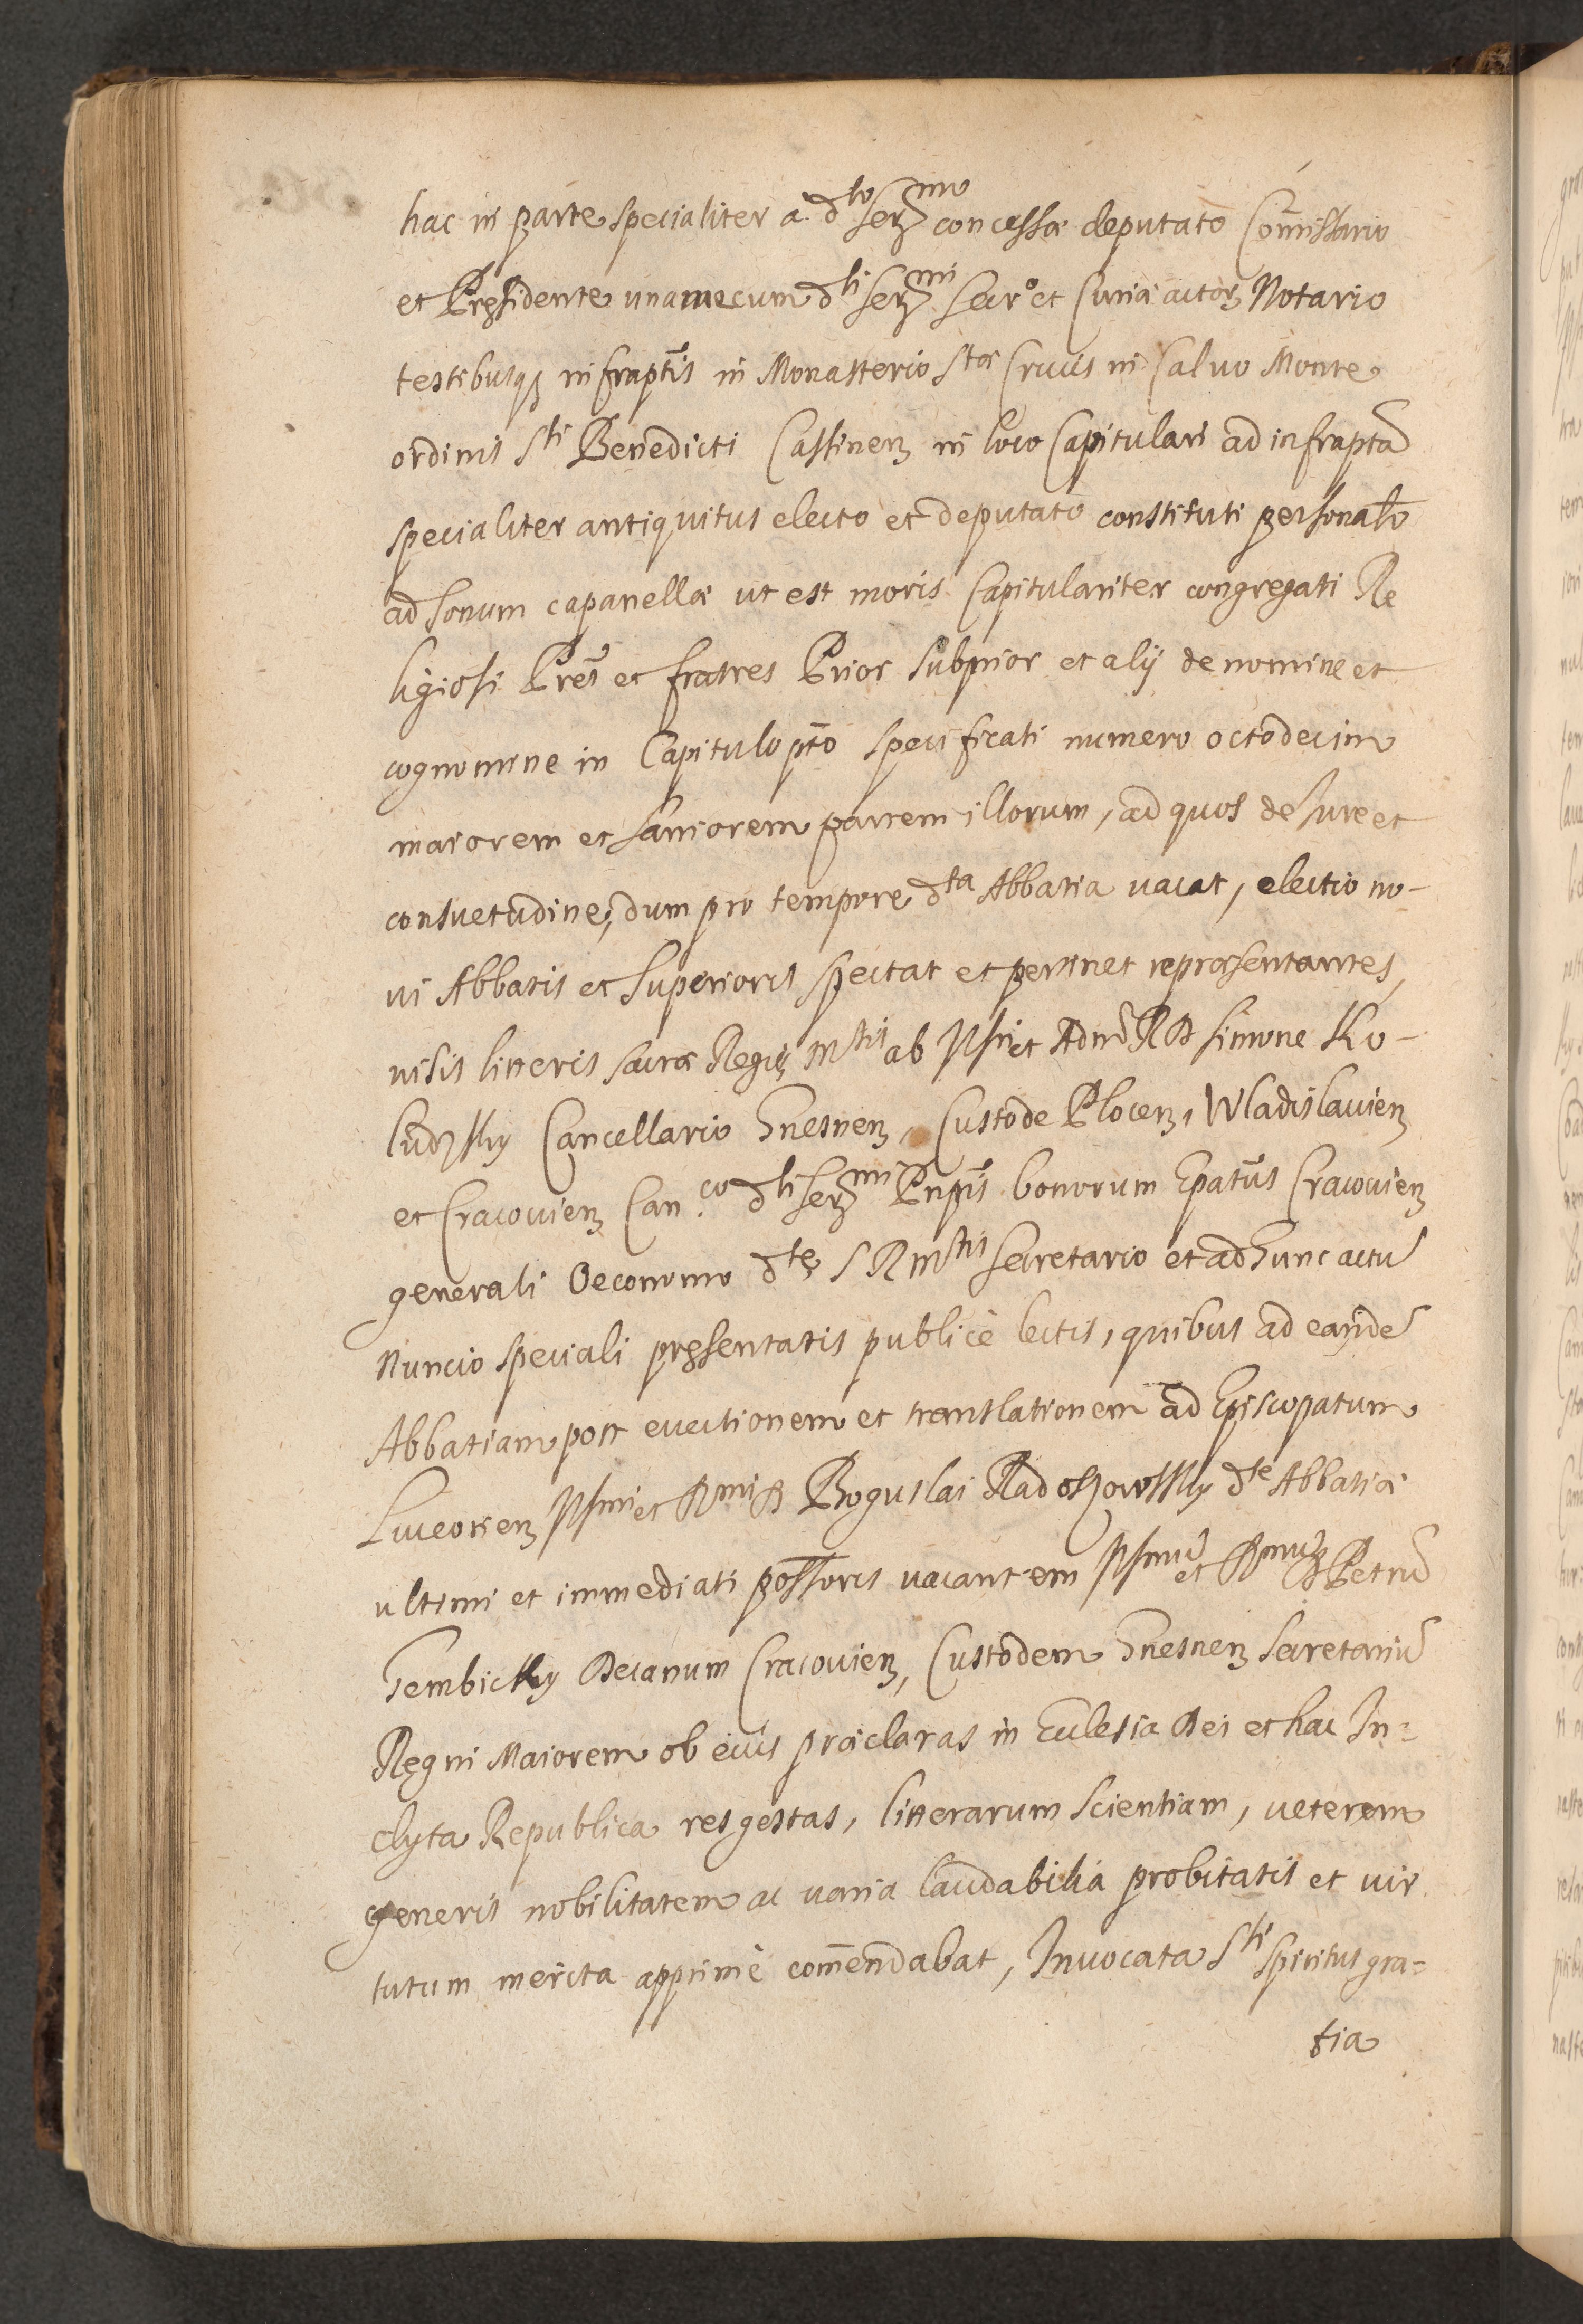 hac in parte specialiter a dto Sermo concessæ deputato Com̃issario
et Pręsidente unamecum dti Sermi Secro et Curiæ actor Notario
testibusq infraptis in Monasterio Stæ Crucis in Calvo Monte
ordinis Sti Benedicti Cassinen in loco Capitulari ad infrapta
specialiter antiquitus electo et deputato constituti personalr
ad sonum capanellæ ut est moris Capitulariter congregati Re
ligiosi Pres et fratres Prior Subprior et alÿ de nomine et
cognomine in Capitulo pto specificati numero octodecim
maiorem et saniorem partem illorum, ad quos de Jure et
consuetudine, dum pro tempore dta Abbatia vacat, electio no-
vi Abbatis et Superioris spectat et pertinet repræsentantes,
visis litteris sacræ Regię Mtis ab Illri et Admd RD Simone Ko-
ludzky Cancellario Gnesnen, Custode Plocen, Wladislavien
et Cracovien Canco dti Sermi Pnpis bonorum Epatus Cracovien
generali Oeconomo dtę S R Mtis Secretario et ad hunc actu
Nuncio speciali pręsentatis publicè lectis, quibus ad eande
Abbatiam post evectionem et translationem ad Episcopatum
Luceorien Illmi et Rmi D Boguslai Radoszowsky dte Abbatiæ
ultimi et immediati possoris vacantem Illmu et Rmu D Petru
Gembicky Decanum Cracovien, Custodem Gnesnen Secretariu
Regni Maiorem ob eius præclaras in Ecclesia Dei et hac In=
clyta Republica res gestas, litterarum scientiam, veterem
generis nobilitatem ac varia laudabilia probitatis et vir
tutum merita apprimè com̃endabat, Invocata Sti Spiritus gra=
tia